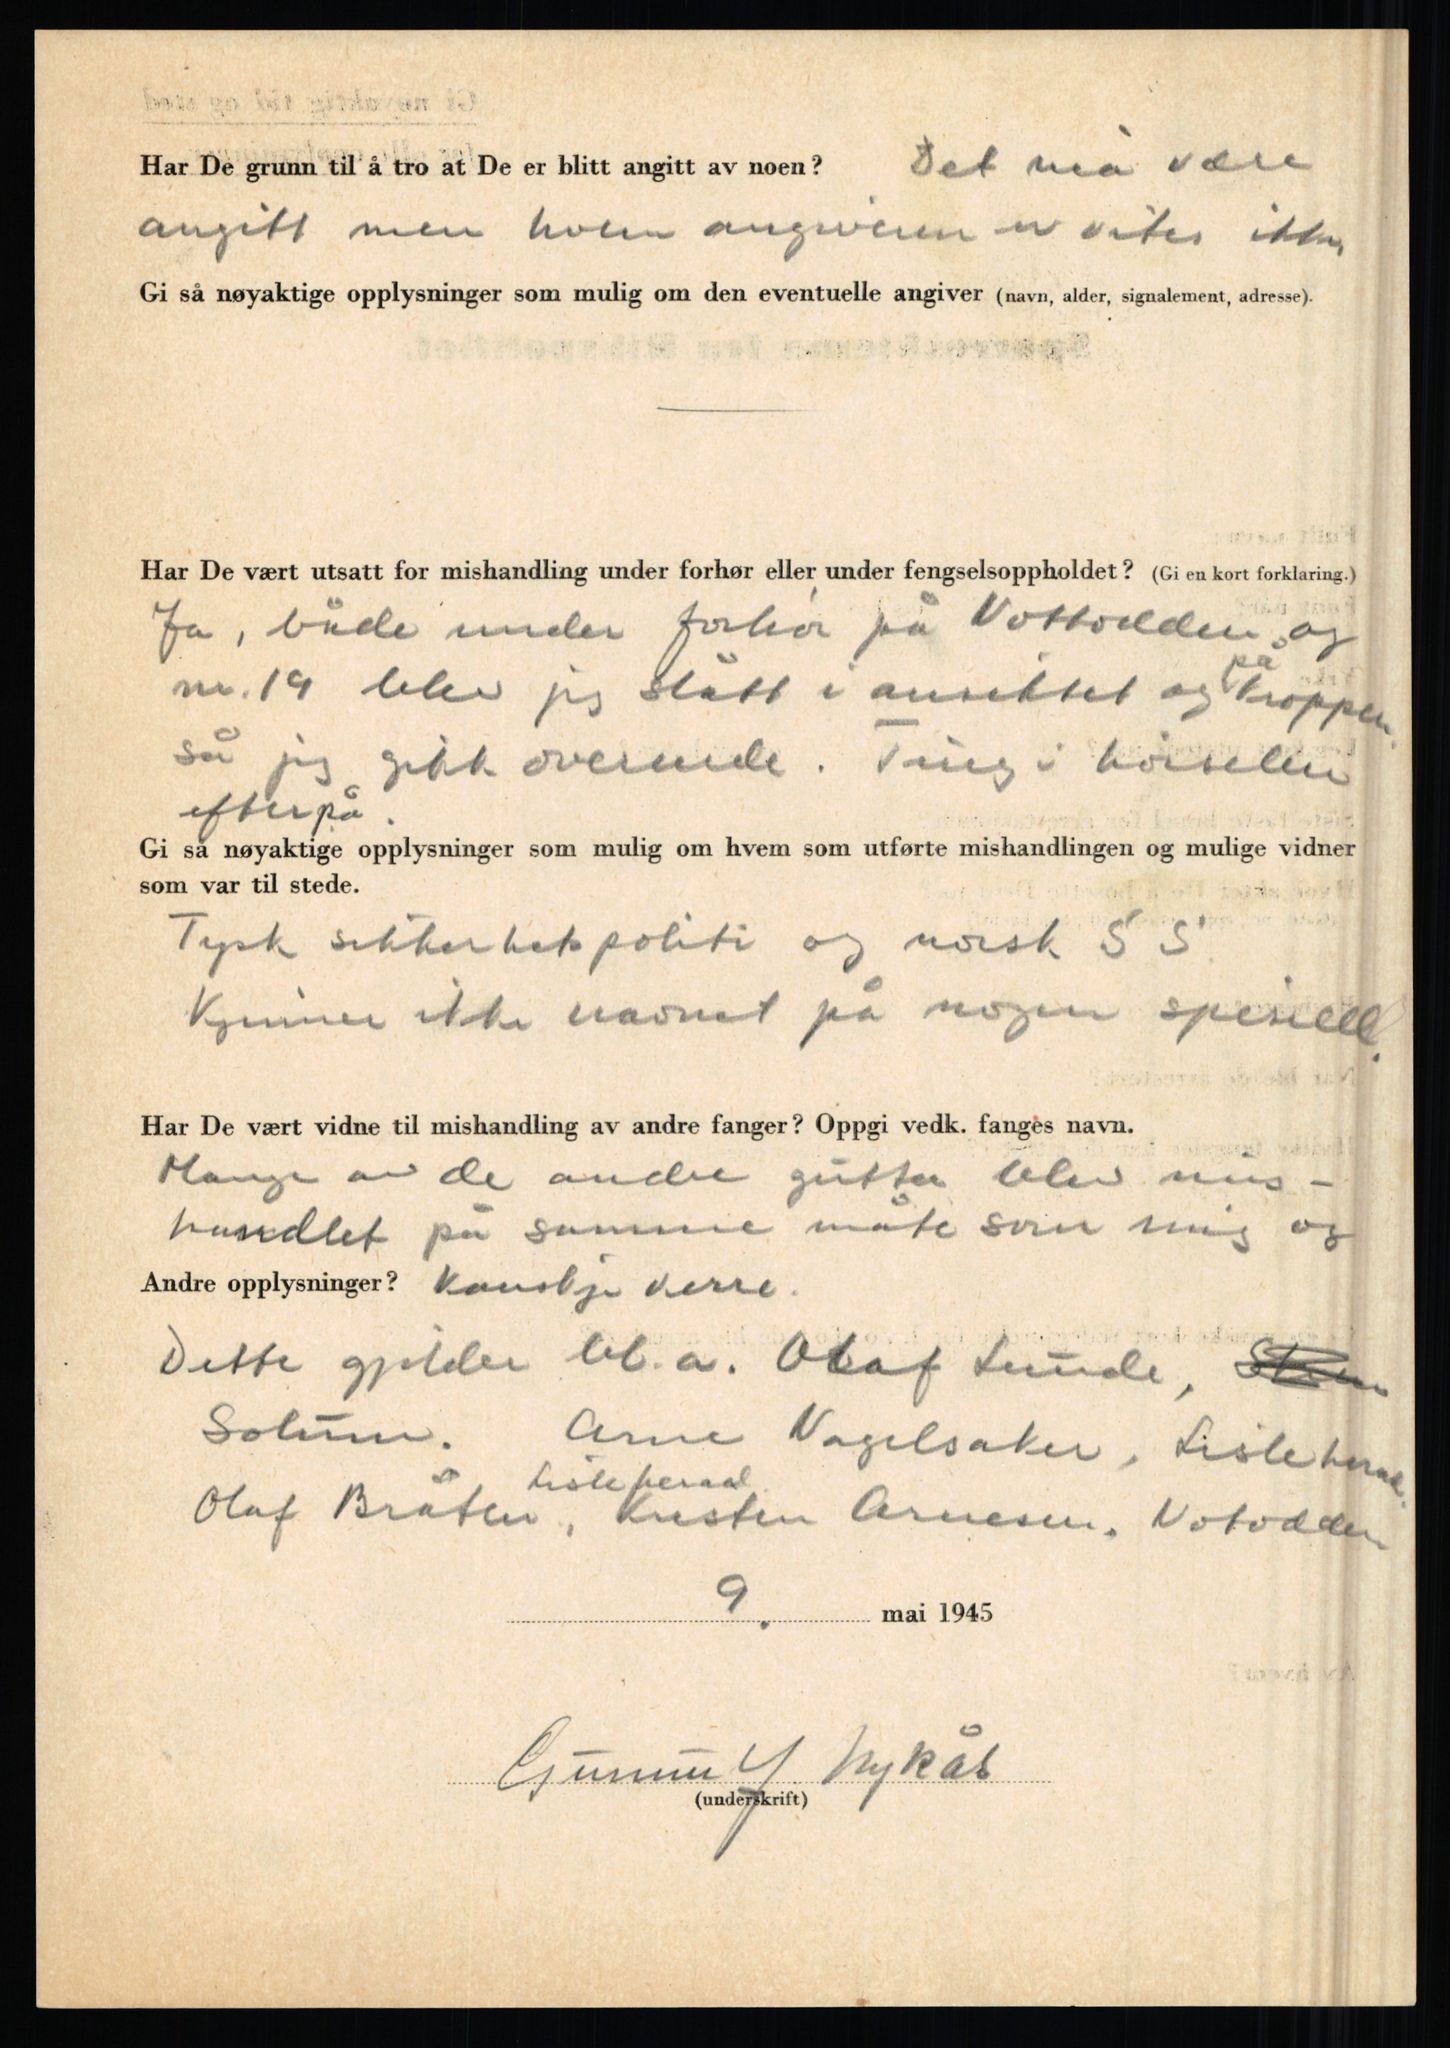 Har De grunn til å tro at De er blitt angitt av noen? Det må være
angitt men hvem angiveren er vites ikke,
Gi så nøyaktige opplysninger som mulig om den eventuelle angiver (navn, alder, signalement, adresse).
Har De vært utsatt for mishandling under forhør eller under fengselsoppholdet? (Gi en kort forklaring.)
Ja, både under forhør på Nottodden og
nr. 19 blev jeg slått i ansiktet og på kroppen.
så jeg gikk overende. Tung i hørselen
efterpå.
Gi så nøyaktige opplysninger som mulig om hvem som utførte mishandlingen og mulige vidner
som var til stede.
Tysk sikkerhetspoliti og norsk S S
Kjenner ikke navnet på nogen spesiell.
Har De vært vidne til mishandling av andre fanger? Oppgi vedk. fanges navn.
Mange av de andre gutter blev mis-
handlet på samme måte som mig og
Andre opplysninger? kanskje verre.
Dette gjelder bl.a. Olaf Lunde,
Solum. Arne Nagelsaker, Lisleherad.
Lisleherad
Olaf Bråten, Kristen Arnesen. Notodden
9. mai 1945
Gunnu Y. Nykås
(underskrift)